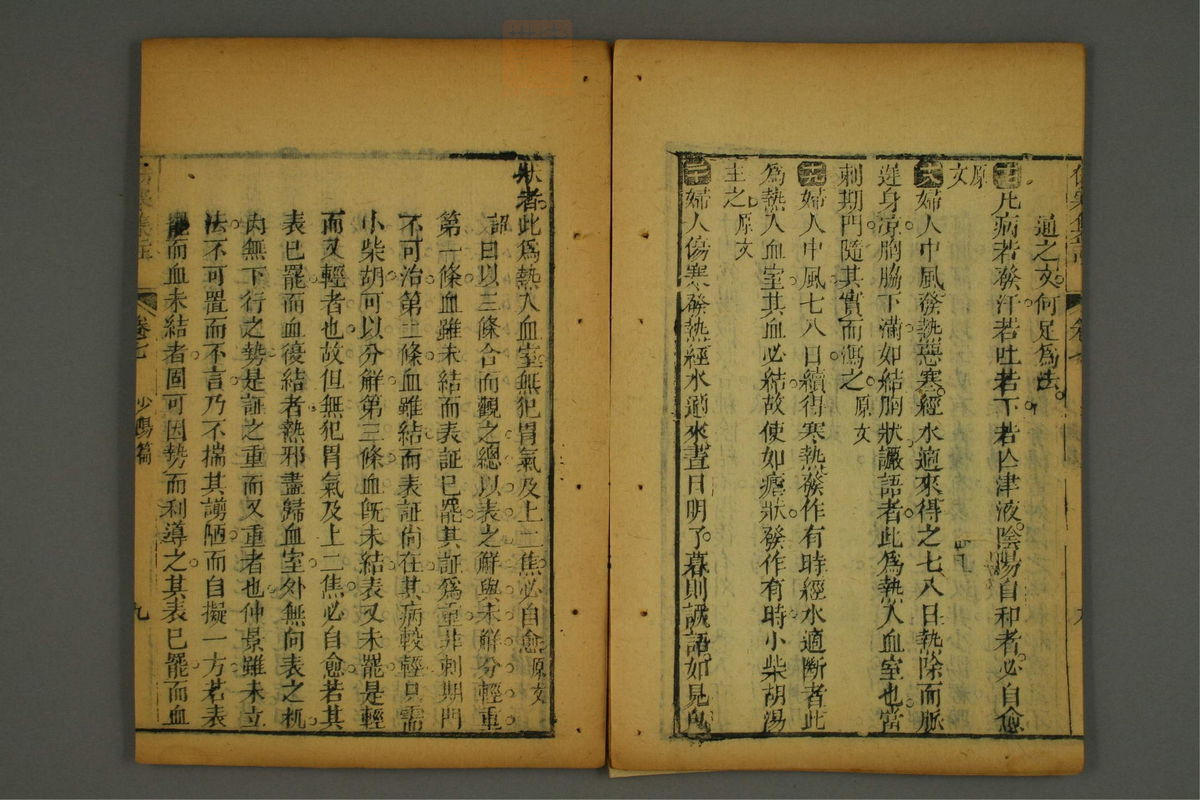 通之文何足為法
凡病若發汗若吐若下若亾津液陰陽自和者必自愈
原文
婦人中風發熱惡寒經水適來得之七八日熱除而脈
遲身涼胸脇下滿如結胸狀讝語者此為熱入血室也當
刺期門隨其實而瀉之原文
婦人中風七八日續得寒熱發作有時經水適斷者此
為熱入血室其血必結故使如瘧狀發作有時小柴胡湯
主之原文
婦人傷寒發熱經水適來晝日明了暮則讝語如見鬼
狀者此爲熱入血室無犯胃氣及上二焦必自愈原文
詔曰以三條合而觀之總以表之解與未解分輕重
第一條血雖未結而表証已罷其証爲重非刺期門
不可治第二條血雖結而表証尙在其病較輕只需
小柴胡可以分解第三條血旣未結表又未罷是輕
而又輕者也故但無犯胃氣及上二焦必自愈若其
表已罷而血復結者熱邪盡歸血室外無向表之机
內無下行之勢是証之重而又重者也仲景雖未立
法不可置而不言乃不揣其謭陋而自擬一方若表
罷而血未結者固可因勢而利導之其表已罷而血
卷七 少陽篇 九